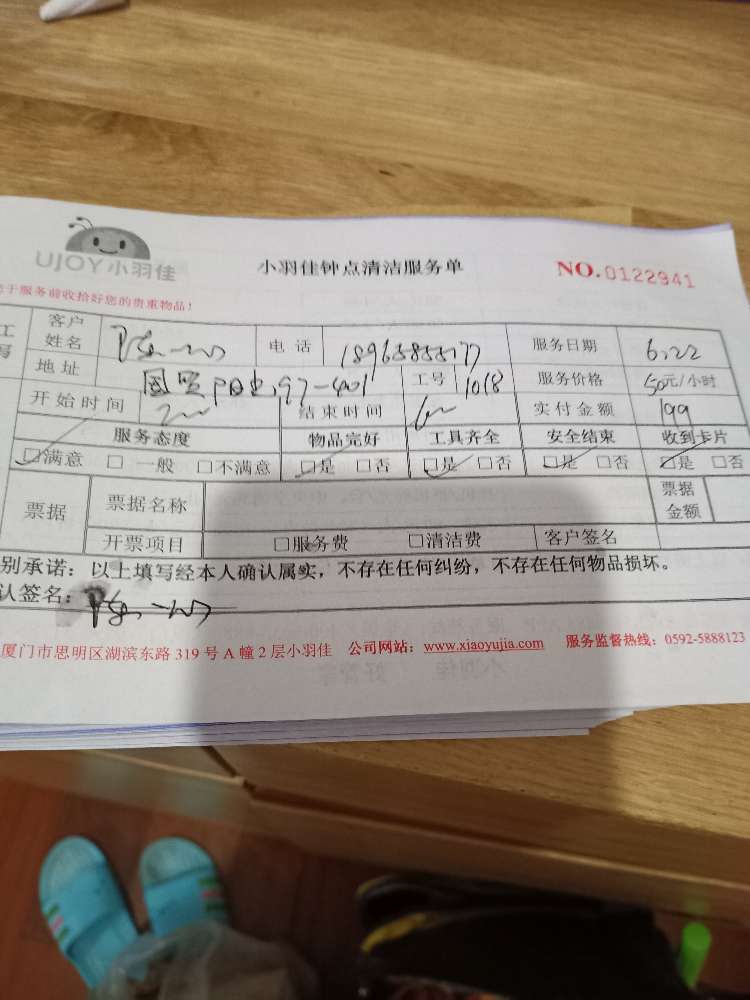 UJOY小羽佳
小羽佳钟点清洁服务单
NO.0122941
于服务前收拾好您的贵重物品！
客户姓名 电话 服务日期 6.22
地址 97-401 工号 1018 服务价格 50元/小时
开始时间 结束时间 实付金额 199
服务态度 物品完好 工具齐全 安全结束 收到卡片
☑满意 □ 一般 □不满意 ☑是 □否 ☑是 □否 ☑是 □否 ☑是 □否
票据 票据名称 票据金额
开票项目 □服务费 □清洁费 客户签名
别承诺：以上填写经本人确认属实，不存在任何纠纷，不存在任何物品损坏。
认签名：
厦门市思明区湖滨东路 319 号 A 幢 2 层小羽佳 公司网站：www.xiaoyujia.com 服务监督热线：0592-5888123